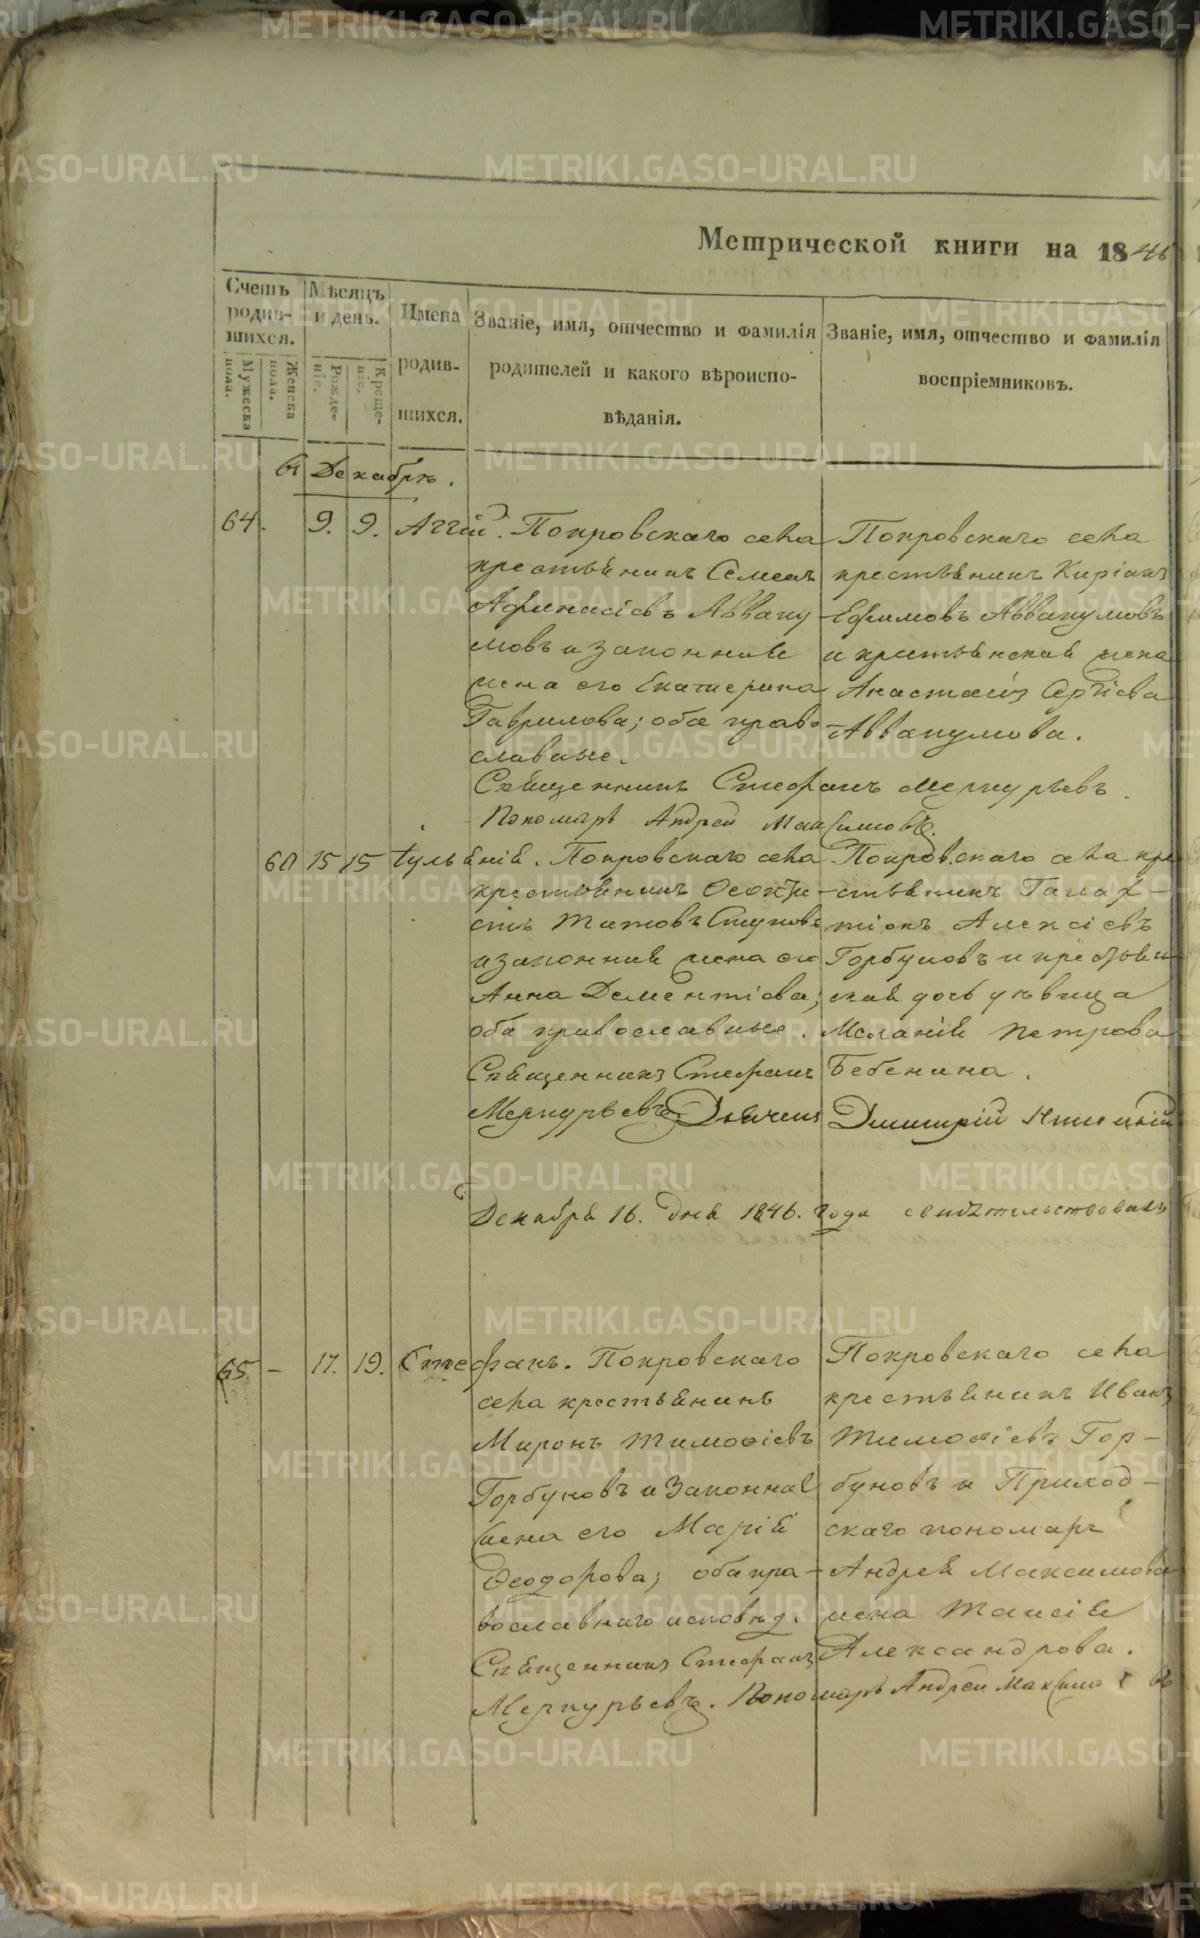 Метрической книги на 1846
Счетъ родив-шихся.
Мужеска пола.
Женска пола.
Мѣсяцъ и день.
Рожде-ніе.
Креще-ніе.
Имена родив-шихся.
Званіе, имя, отчество и фамилія
родителей и какого вѣроиспо-
вѣданія.
Званіе, имя, отчество и фамилія
воспріемниковъ.
въ Декабрѣ.
64. 9. 9. Аггій.
Покровскаго села
крестьянинъ Семенъ
Афанасіевъ Авваку
мовъ и законная
жена его Екатерина
Гаврилова; оба право
славные.
Покровскаго села
крестьянинъ Киріакъ
Ефимовъ Аввакумовъ
и крестьянская жена
Анастасія Сергіева
Аввакумова.
Священникъ Стефанъ Меркурьевъ.
Пономарь Андрей Максимовъ.
60 15 15 Іуліянія.
Покровскаго села
крестьянинъ Феокти-
стъ Титовъ Ступинъ
и законная жена его
Анна Дементіева;
оба православные.
Священникъ Стефанъ
Меркурьевъ. Дьячекъ
Покровскаго села кре
стьянинъ Галах-
тіонъ Алексіевъ
Горбуновъ и крестьян
ская дочь дѣвица
Меланія Петрова
Бебенина.
Дмитрій
Декабря 16. дня 1846. года свидѣтельствовалъ
65 - 17. 19. Стефанъ.
Покровскаго
села крестьянинъ
Миронъ Тимофіевъ
Горбуновъ и законная
жена его Марія
Феодорова; оба пра-
вославнаго исповѣд.
Священникъ Стефанъ
Меркурьевъ. Пономарь Андрей Максимовъ
Покровскаго села
крестьянинъ Иванъ
Тимофіевъ Гор-
буновъ и Приход-
скаго пономаря
Андрея Максимова
жена Таисія
Александрова.
METRIKI.GASO-URAL.RU